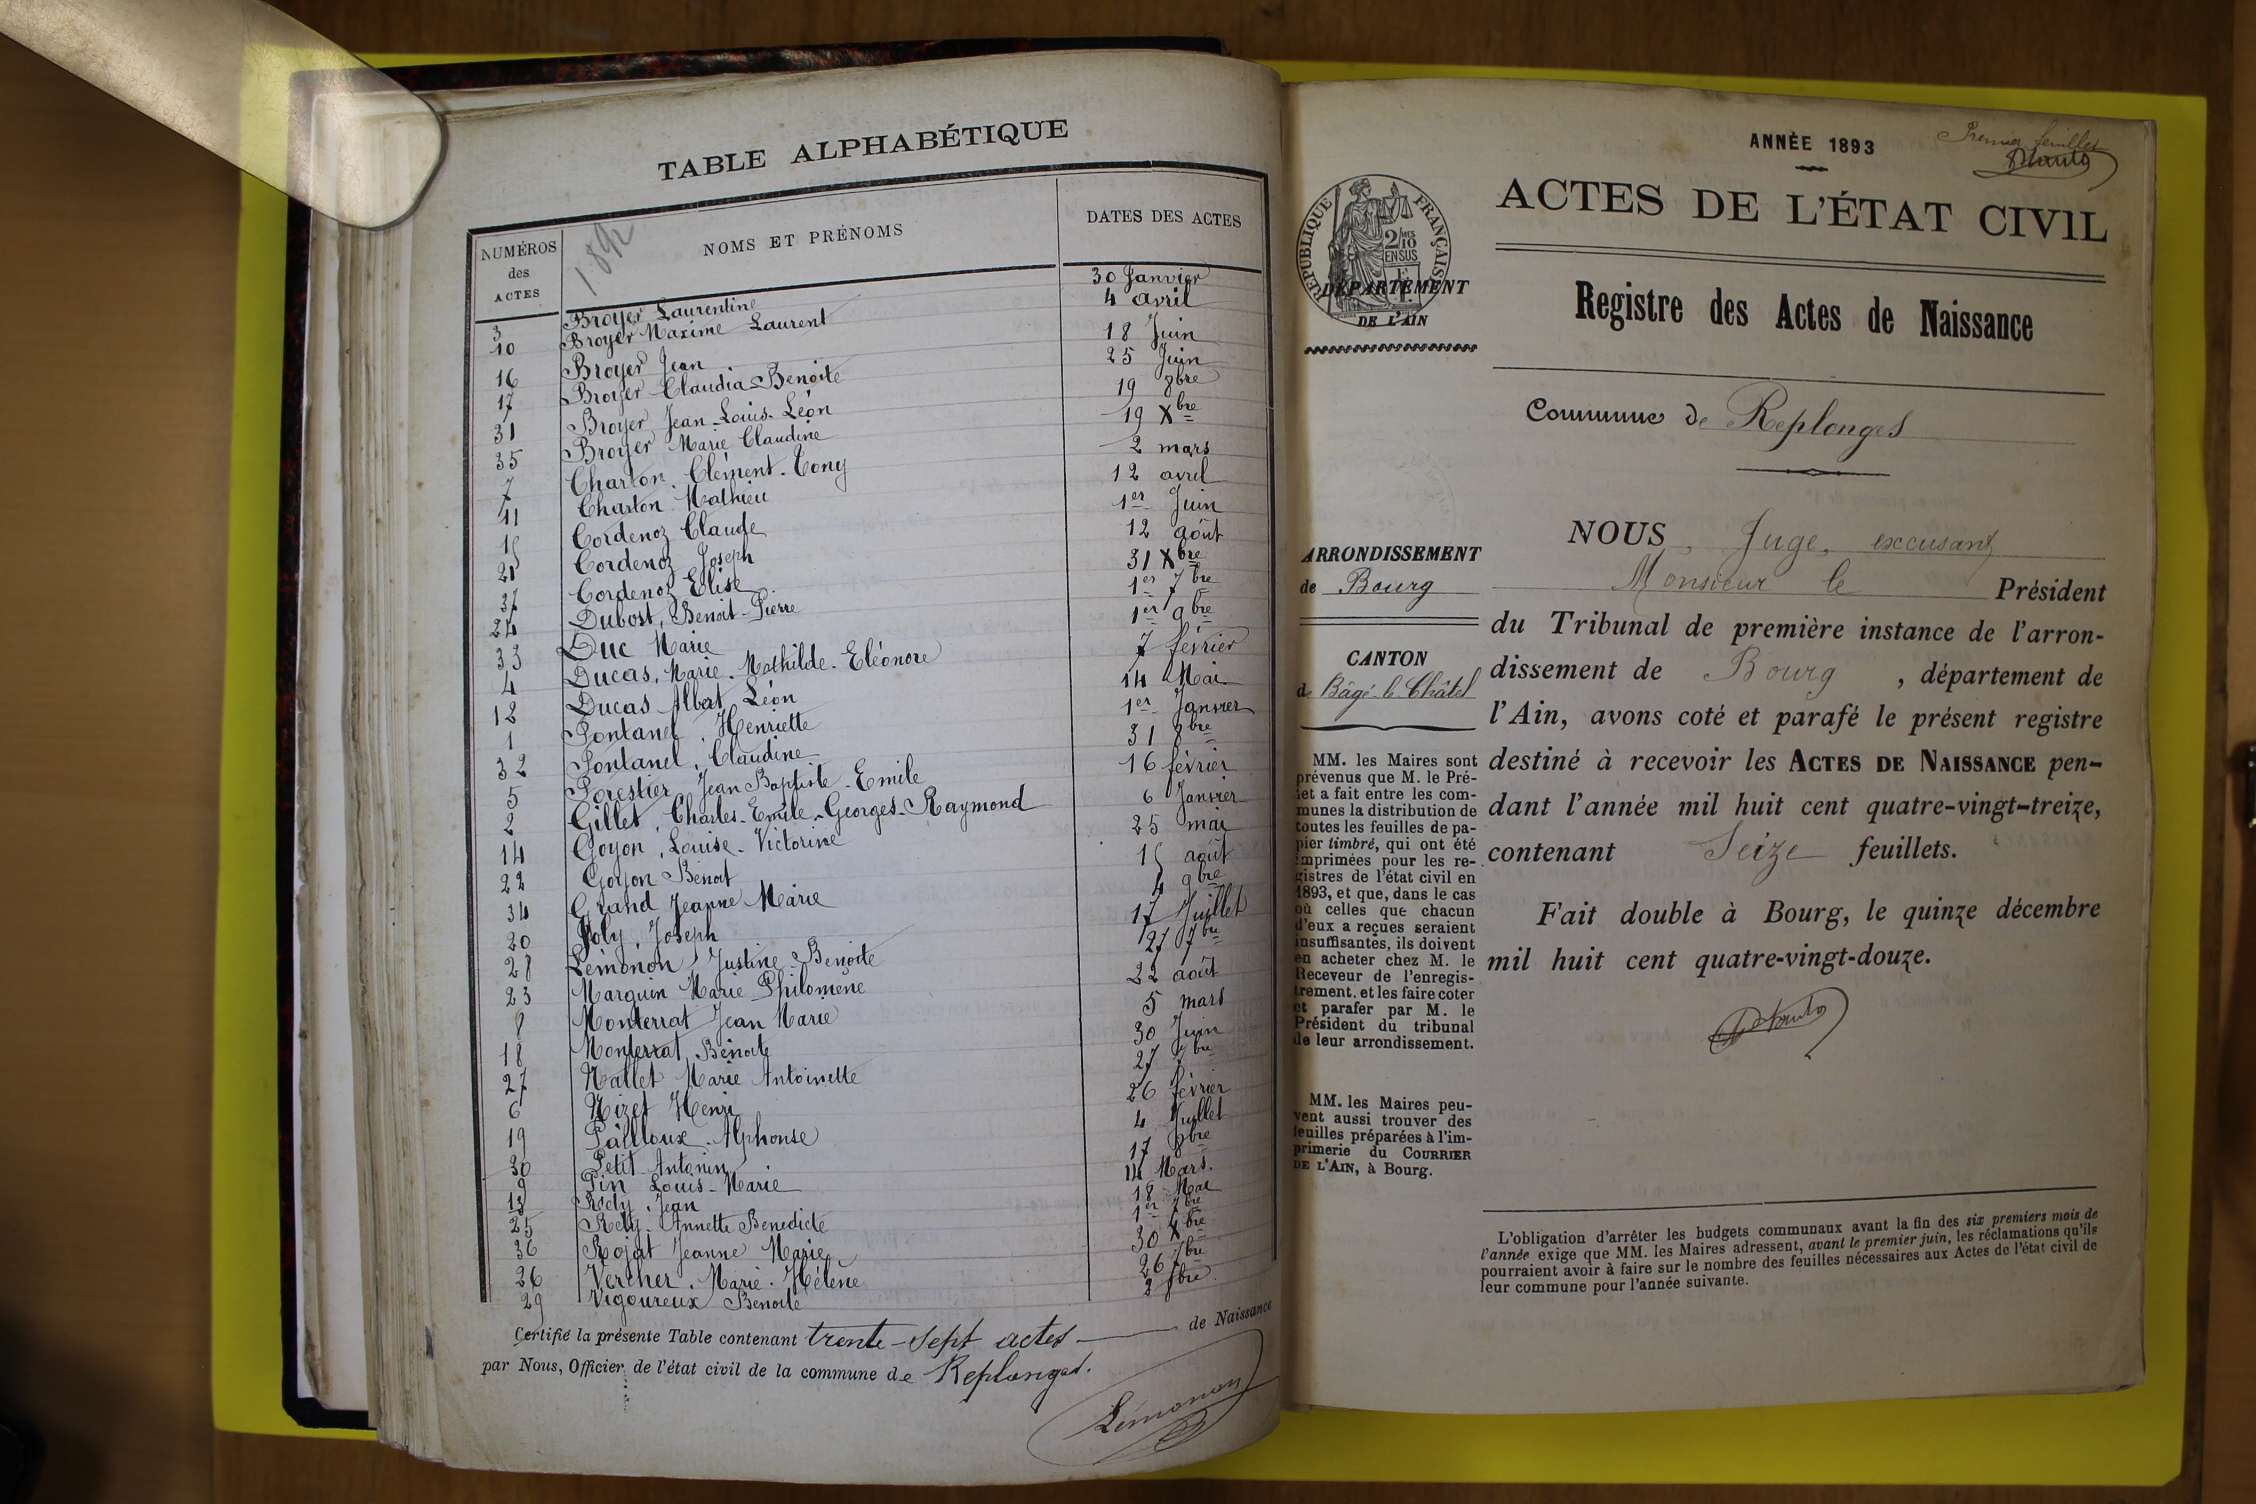 TABLE ALPHABÉTIQUE
NUMÉROS des ACTES
1892
NOMS ET PRÉNOMS
DATES DES ACTES
3 Broyer Laurentine 30 Janvier
10 Broyer Maxime Laurent 4 avril
16 Broyer Jean 18 Juin
17 Broyer Claudia-Benoite 25 Juin
31 Broyer Jean-Louis-Léon 19 8bre
35 Broyer Marie Claudine 19 Xbre
7 Charton, Clément-Tony 2 mars
11 Charton Mathieu 12 avril
15 Cordenoz Claude 1er Juin
21 Cordenoz Joseph 12 août
37 Cordenoz Elise 31 Xbre
24 Dubost, Benoit-Pierre 1er 7bre
33 Duc Marie 1er 9bre
4 Ducas, Marie-Mathilde-Eléonore 7 février
12 Ducas Albert Léon 14 Mai
1 Fontanel, Henriette 1er Janvier
32 Fontanel, Claudine 31 8bre
5 Forestier, Jean Baptiste-Emile 16 février
2 Gillet, Charles-Emile-Georges-Raymond 6 Janvier
14 Goyon, Louise-Victorine 25 mai
22 Goyon Benoit 15 août
34 Grand Jeanne Marie 4 9bre
20 Joly, Joseph 17 Juillet
28 Lémonon, Justine-Benoite 27 7bre
23 Marguin Marie Philomène 22 août
8 Monterrat Jean Marie 5 mars
18 Monterrat Benoite 30 Juin
27 Nallet Marie Antoinette 27 7bre
6 Nizet Henri 26 février
19 Pailloux-Alphonse 4 Juillet
30 Petit Antonin 17 8bre
9 Pin Louis-Marie 14 Mars.
13 Rety, Jean 18 Mai
25 Rety-Annette Benedicte 1er 7bre
36 Rojat Jeanne Marie 30 Xbre
26 Vercher, Marie-Hélène 26 7bre
29 Vigoureux Benoite 2 8bre
Certifié la présente Table contenant trente-sept actes de Naissance
par Nous, Officier de l'état civil de la commune de Replonges.
Lémonon
ANNÉE 1893
Premier feuillet
RÉPUBLIQUE FRANÇAISE
2/10 EN SUS
ACTES DE L'ÉTAT CIVIL
DÉPARTEMENT
DE L'AIN
Registre des Actes de Naissance
Commune de Replonges
ARRONDISSEMENT
de Bourg
CANTON
de Bâgé le Châtel
MM. les Maires sont
prévenus que M. le Pré-
fet a fait entre les com-
munes la distribution de
toutes les feuilles de pa-
pier timbré, qui ont été
imprimées pour les re-
gistres de l'état civil en
1893, et que, dans le cas
où celles que chacun
d'eux a reçues seraient
insuffisantes, ils doivent
en acheter chez M. le
Receveur de l'enregis-
trement. et les faire coter
et parafer par M. le
Président du tribunal
de leur arrondissement.
MM. les Maires peu-
vent aussi trouver des
feuilles préparées à l'im-
primerie du COURRIER
DE L'AIN, à Bourg.
NOUS, Juge, excusant
Monsieur le Président
du Tribunal de première instance de l'arron-
dissement de Bourg, département de
l'Ain, avons coté et parafé le présent registre
destiné à recevoir les ACTES DE NAISSANCE pen-
dant l'année mil huit cent quatre-vingt-treize,
contenant Seize feuillets.
Fait double à Bourg, le quinze décembre
mil huit cent quatre-vingt-douze.
L'obligation d'arrêter les budgets communaux avant la fin des six premiers mois de
l'année exige que MM. les Maires adressent, avant le premier juin, les réclamations qu'ils
pourraient avoir à faire sur le nombre des feuilles nécessaires aux Actes de l'état civil de
leur commune pour l'année suivante.